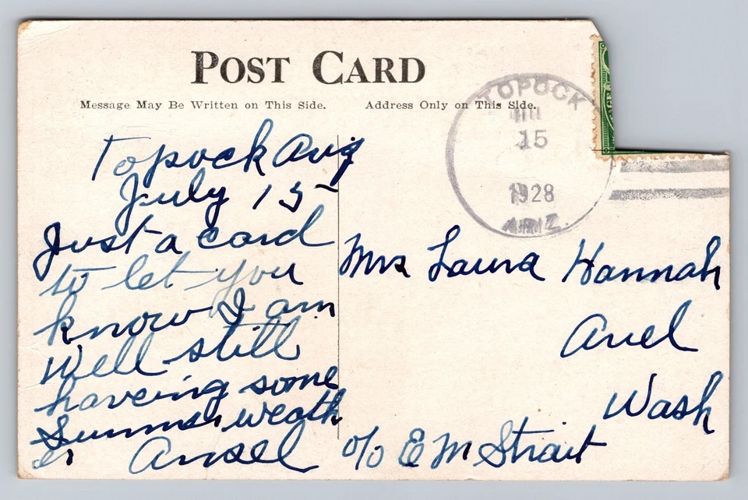 POST CARD
Message May Be Written on This Side.
Address Only on This Side.
TOPOCK
JUL
15
1928
ARIZ.
Topock Ariz
July 15
Just a card
to let you
know I am
well still
haveing some
Summer weath
er Ansel
Mrs Laura Hannah
Ariel
Wash
c/o E M Strait